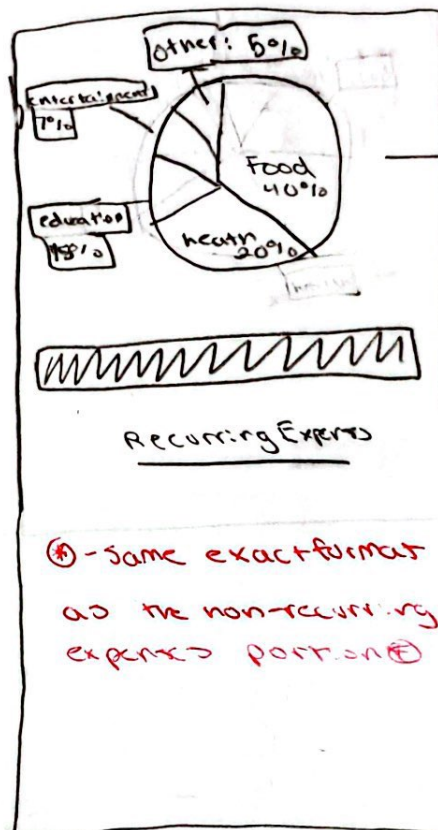 other: 5%
entertainment
7%
Food
40%
education
health
20%
Recurring Expenses
* - same exact format
as the non-recurring
expenses portion *